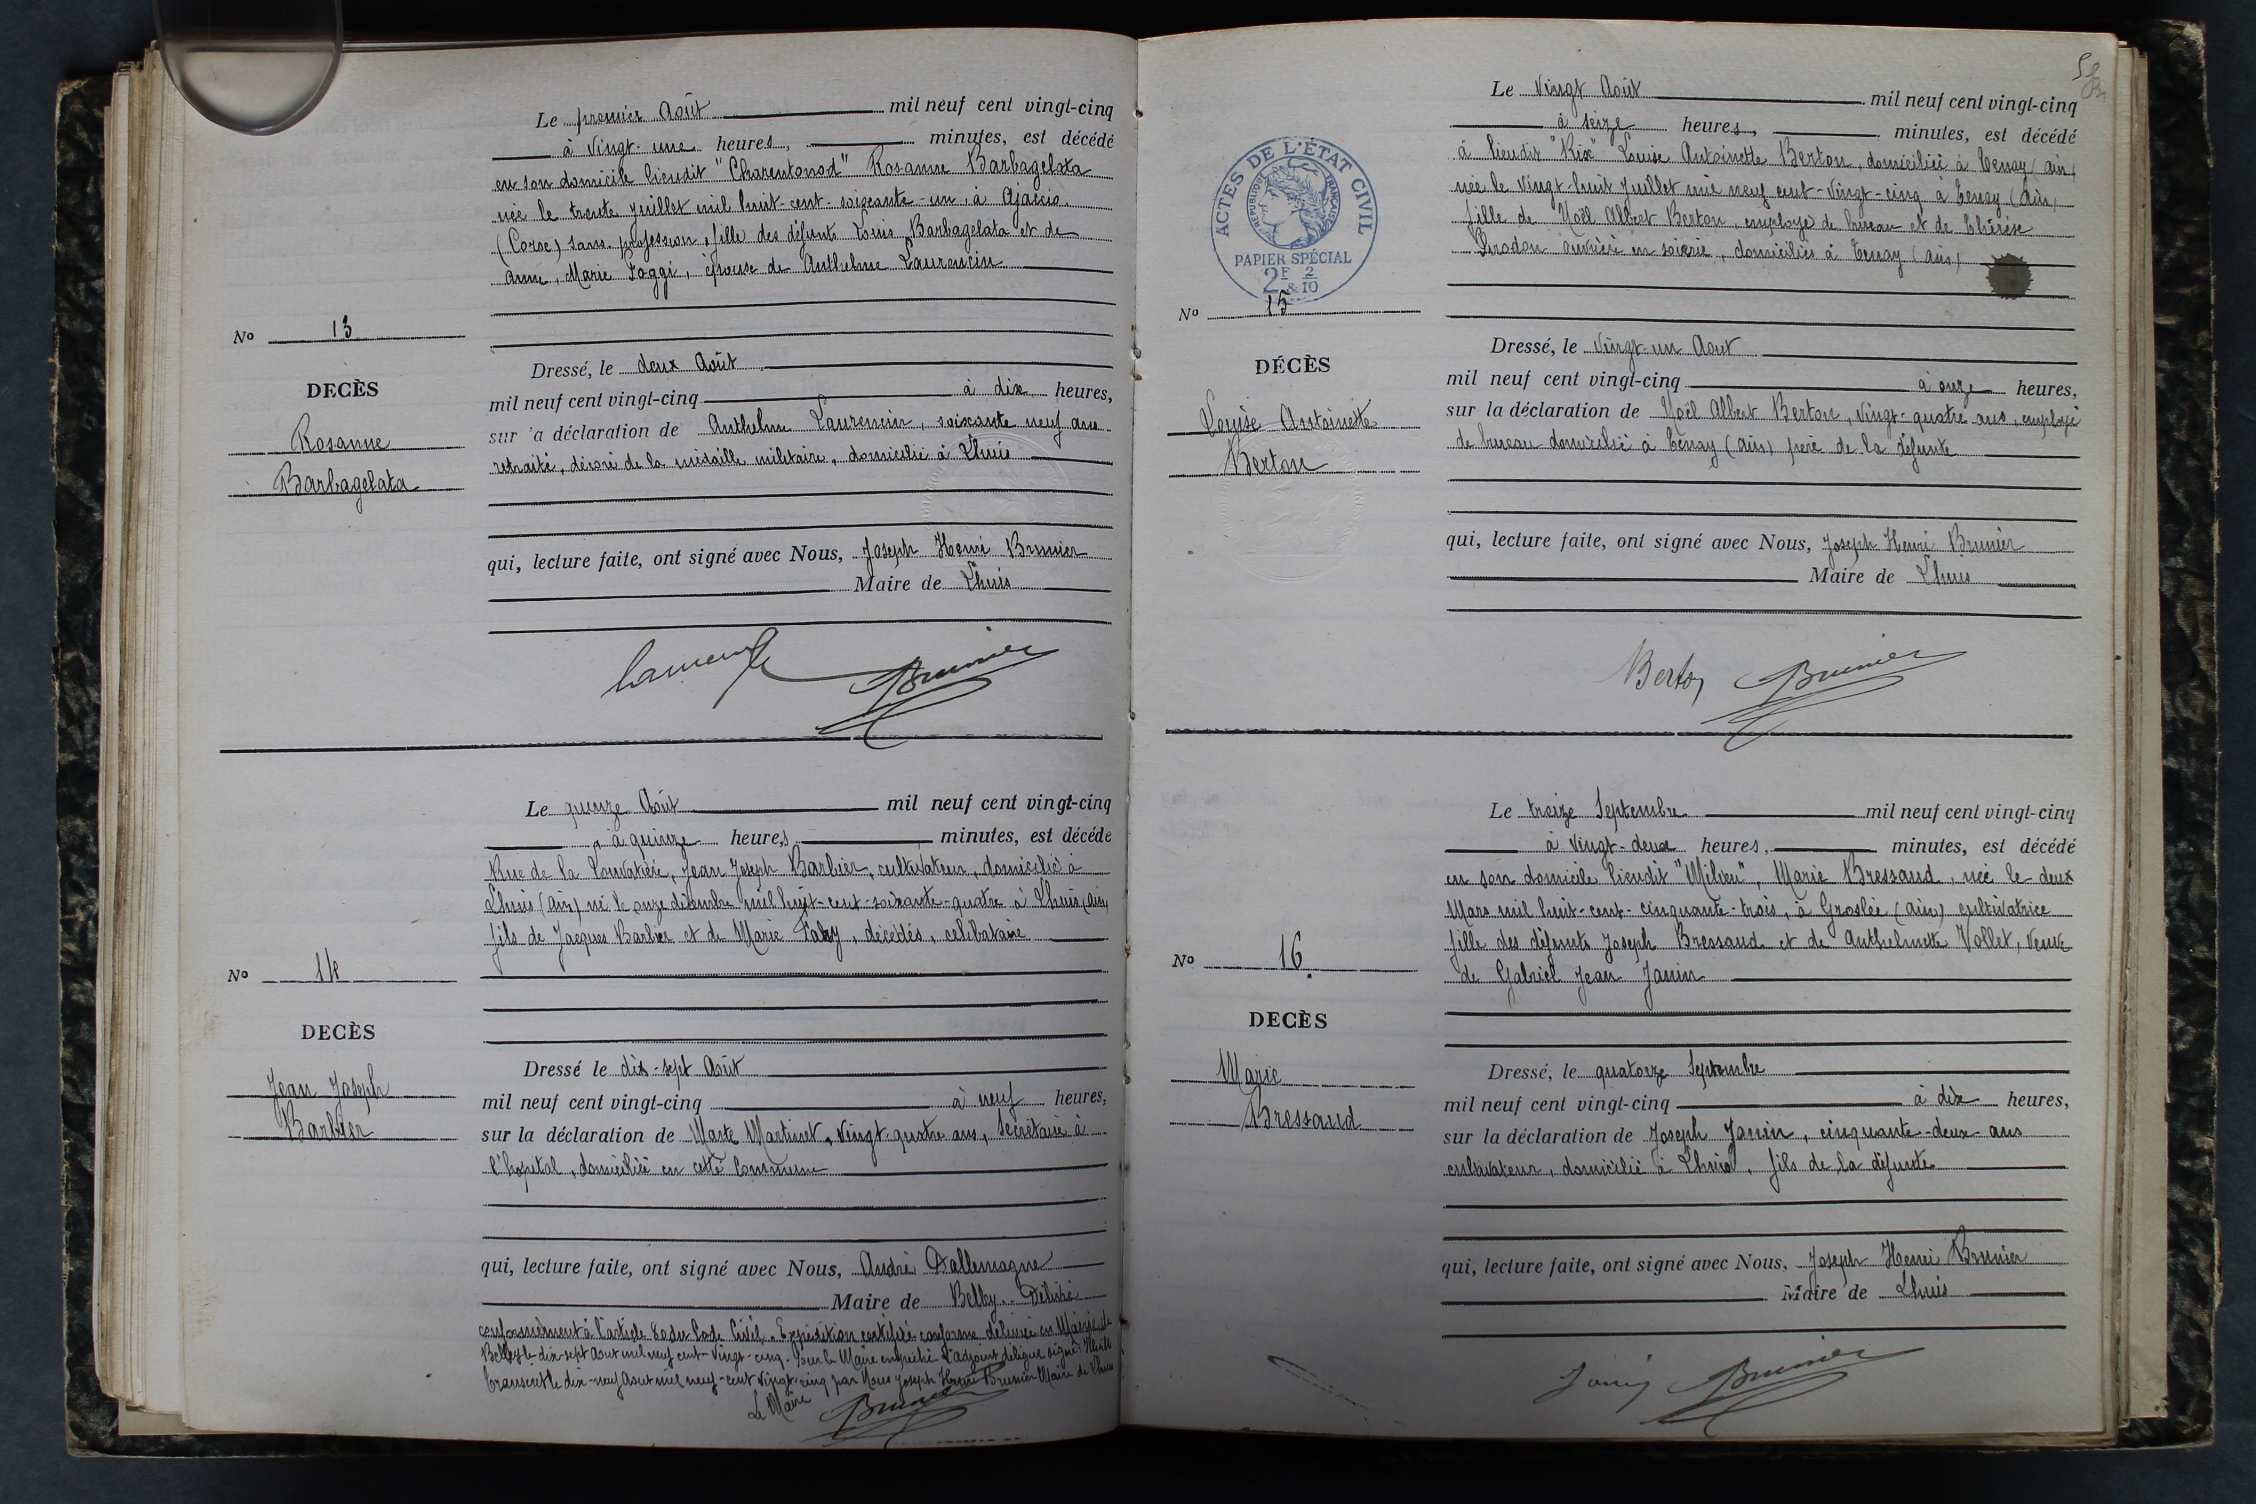 Le premier Août mil neuf cent vingt-cinq
à vingt-une heures, minutes, est décédé
en son domicile lieudit "Charentonod" Rosanne Barbagelata
née le trente juillet mil huit-cent-soixante-un, à Ajaccio
(Corse) sans profession, fille des défunts Louis Barbagelata et de
Anne, Marie Poggi, épouse de Anthelme Laurencin
No 13
DECÈS
Rosanne
Barbagelata
Dressé, le deux Août
mil neuf cent vingt-cinq à dix heures,
sur 'a déclaration de Anthelme Laurencin, soixante neuf ans
retraité, décoré de la médaille militaire, domicilié à Lhuis
qui, lecture faite, ont signé avec Nous, Joseph Henri Brunier
Maire de Lhuis
Brunier
Le quinze Août mil neuf cent vingt-cinq
à quinze heures, minutes, est décédé
Rue de la Jean Joseph Barbier, cultivateur, domicilié à
Lhuis (ain) né le onze décembre mil huit-cent-soixante-quatre à Lhuis (ain)
fils de Jacques Barbier et de Marie décédés, célibataire
No 14
DECÈS
Jean Joseph
Barbier
Dressé le dix-sept Août
mil neuf cent vingt-cinq à neuf heures,
sur la déclaration de Marte Martinet, vingt quatre ans, Secrétaire à
l'hopital, domiciliée en cette Commune
qui, lecture faite, ont signé avec Nous, André Dallemagne
Maire de Belley.
conformément à l'article 80 du Code Civil. Expédition certifiée conforme délivrée en Mairie de
Belley le dix-sept Aout mil neuf cent-vingt-cinq. Pour le Maire empêché L'adjoint délégué signé:
Transcrit le dix-neuf Aout mil neuf-cent vingt-cinq par Nous Joseph Henri Brunier Maire de Lhuis
Le Maire Brunier
ACTES DE L'ÉTAT CIVIL
RÉPUBLIQUE FRANÇAISE
PAPIER SPÉCIAL
2F & 2/10
Le vingt Août mil neuf cent vingt-cinq
à seize heures, minutes, est décédé
à lieudit "Rix" Louise Antoinette Berton, domiciliée à Tenay (ain)
née le vingt-huit juillet mil neuf cent-vingt-cinq à Tenay (ain)
fille de Noël Albert Berton, employé de bureau et de Thérèse
Brodon ouvrière en soierie, domiciliés à Tenay (ain)
No 15
DÉCÈS
Louise Antoinette
Berton
Dressé, le vingt-un Aout
mil neuf cent vingt-cinq à onze heures,
sur la déclaration de Noël Albert Berton, vingt-quatre ans, employé
de bureau domicilié à Tenay (ain) père de la défunte
qui, lecture faite, ont signé avec Nous, Joseph Henri Brunier
Maire de Lhuis
Berton Brunier
Le treize Septembre mil neuf cent vingt-cinq
à vingt-deux heures, minutes, est décédé
en son domicile lieudit "Milieu", Marie Bressaud, née le deux
Mars mil huit-cent-cinquante-trois, à Groslée (ain) cultivatrice
fille des défunts Joseph Bressaud et de Anthelmette Vallet, veuve
de Gabriel Jean Janin
No 16
DECÈS
Marie
Bressaud
Dressé, le quatorze Septembre
mil neuf cent vingt-cinq à dix heures,
sur la déclaration de Joseph Janin, cinquante-deux ans
cultivateur, domicilié à Lhuis, fils de la défunte
qui, lecture faite, ont signé avec Nous, Joseph Henri Brunier
Maire de Lhuis
Janin Brunier